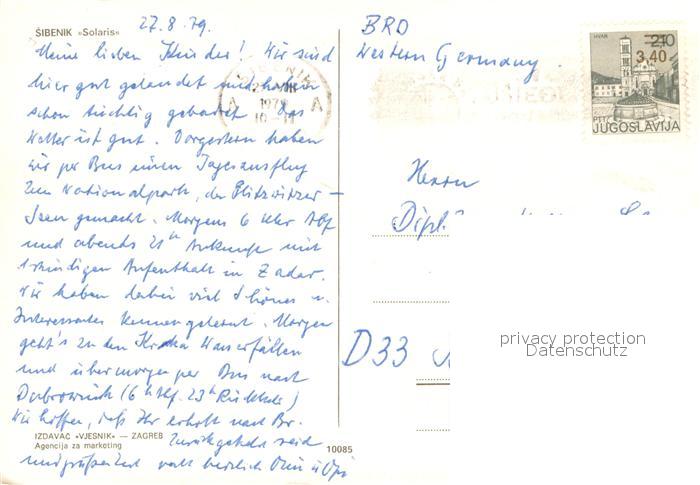 ŠIBENIK »Solaris«
27.8.79.
Meine lieben Kinder! Wir sind
hier gut gelandet und haben
schon tüchtig gebadet. Das
Wetter ist gut. Vorgestern haben
wir per Bus einen Tagesausflug
zum Nationalpark, der Plitwitzer-
Seen gemacht. Morgens 6 Uhr Abf
und abends 21h Ankunft mit
stündigen Aufenthalt in Zadar.
Wir haben dabei viel Schönes u.
Interessantes kennengelernt. Morgen
geht's zu den Krka Wasserfällen
und übermorgen per Bus nach
Dubrownik (6h Abf. 23h Rückkehr)
Wir hoffen, daß Ihr erholt nach Br.
zurückgekehrt seid
und grüßen Euch recht herzlich Omi u Opi
IZDAVAČ »VJESNIK« — ZAGREB
Agencija za marketing
10085
1979
10-11
A A
BRD
Western Germany
HVAR
2,10
3,40
PTT
JUGOSLAVIJA
Herrn
Dipl
D33
privacy protection
Datenschutz